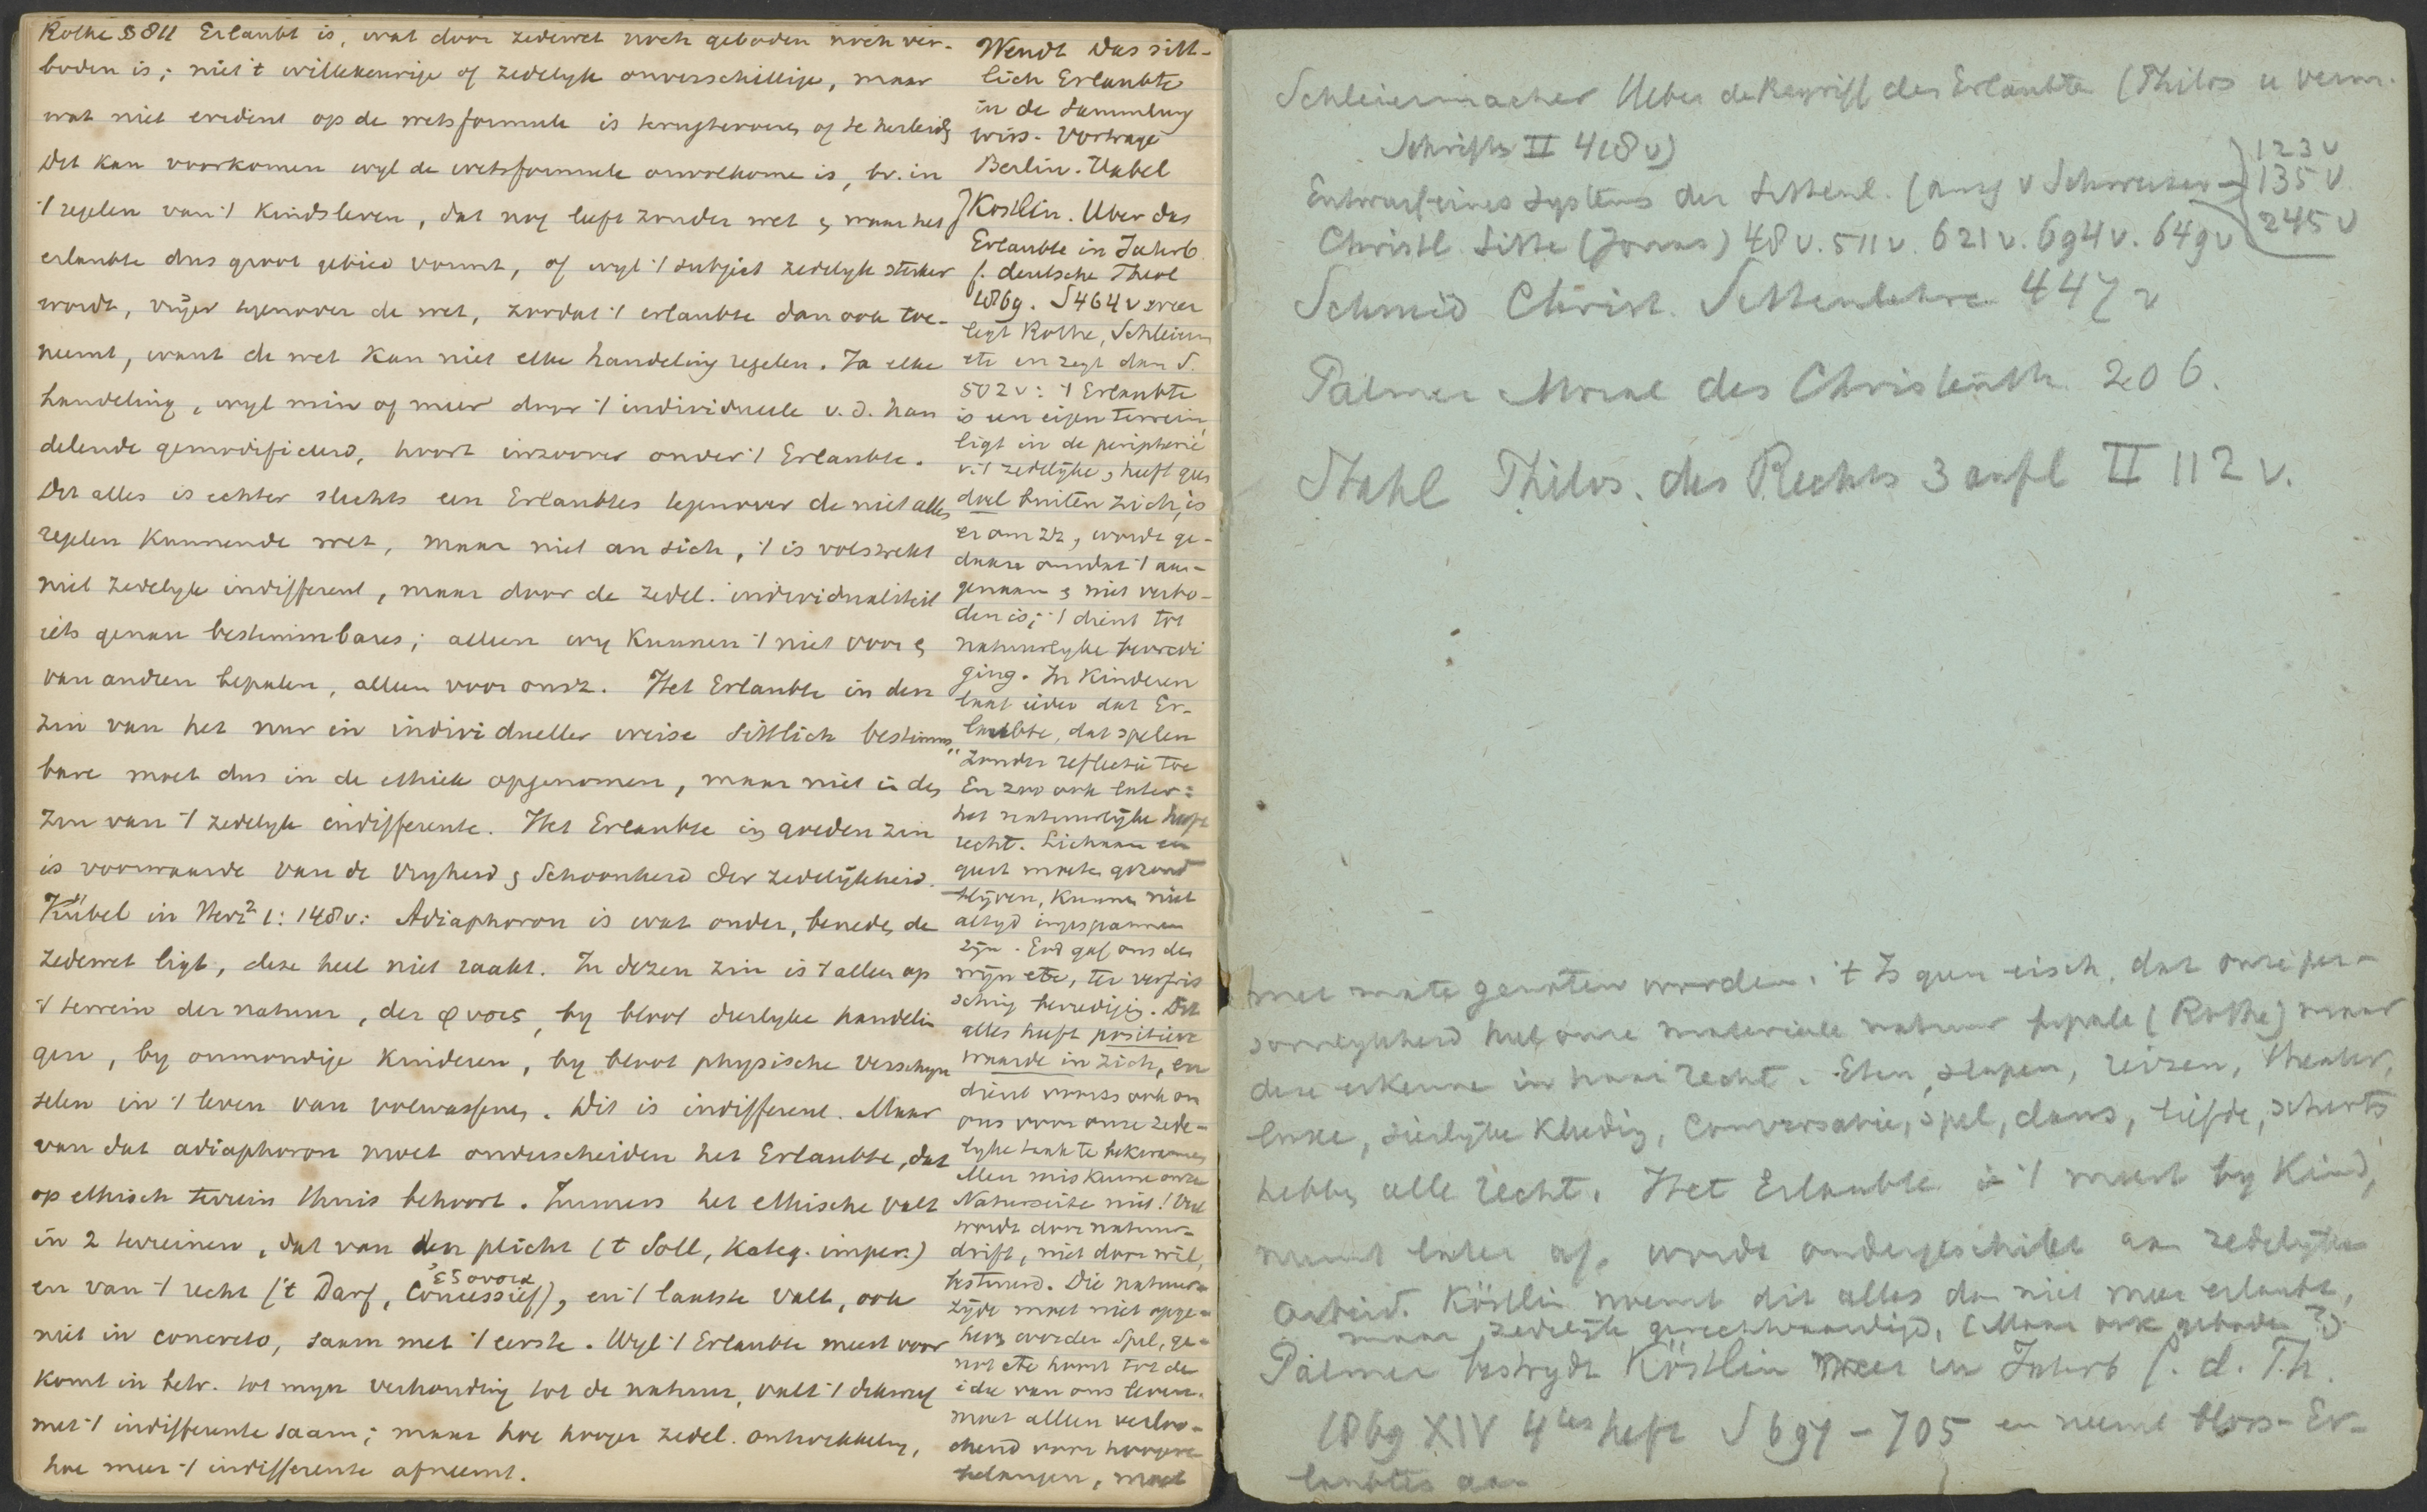 Rothe § 811 Erlaubt is, wat door zedewet noch geboden noch ver-
boden is; niet 't willekeurige of zedelyk onverschillige, maar
wat niet evident op de wetsformule is terugtevoeren of te herleidg
Dit kan voorkomen wyl de wetsformule onvolkome is, bv. in
't regelen van 't Kindsleven, dat nog leeft zonder wet & waar het
erlaubte dus groot gebied vormt, of wyl 't subject zedelyk sterker
wordt, vrijer tegenover de wet, zoodat 't erlaubte dan ook toe-
neemt, want de wet kan niet elke handeling regelen. Ja elke
handeling, wyl min of meer door 't individueele v. d. han
delende gemodificeerd, hoort inzoover onder 't Erlaubte.
Dit alles is echter slechts een Erlaubtes tegenover de niet alles
regelen kunnende wet, maar niet an sich, 't is volstrekt
niet zedelyk indifferent, maar door de zedel. individualiteit
iets genau bestimmbares; alleen wy kunnen 't niet voor &
van andren bepalen, alleen voor onsz. Het Erlaubte in den
zin van het nur in individueller weise sittlich bestimm-
bare moet dus in de ethiek opgenomen, maar niet in den
zin van 't zedelyk indifferente. Het Erlaubte in goeden zin
is voorwaarde van de vryheid & Schoonheid der zedelijkheid.
Kübel in Herz² 1: 148v: Adiaphoron is wat onder, beneden de
zedewet ligt, deze heel niet raakt. In dezen zin is 't alleen op
't terrein der natuur, der φυσις, by bloot dierlyke handelin
gen, by onmondige kinderen, by bloot physische verschyn
selen in 't leven van volwassenen. Dit is indifferent. Maar
van dat adiaphoron moet onderscheiden het Erlaubte, dat
op ethisch terrein thuis behoort. Immers het ethische valt
in 2 terreinen, dat van den plicht (t Soll, Kateg. imper.)
ἐξουσια
en van 't recht ('t Darf, Concessief), en 't laatste valt, ook
niet in concreto, saam met 't eerste. Wyl 't Erlaubte meest voor
komt in betr. tot myn verhouding tot de natuur, valt 't dikwyls
met 't indifferente saam; maar hoe hooger zedel. ontwikkeling,
hoe meer 't indifferente afneemt.
Wendt Das sitt-
lich Erlaubte
in de Sammlung
wiss. Vorträge
Berlin. Habel
Köstlin. Uber das
Erlaubte in Jahrb
f. deutsche Theol
1869. S 464 v weer
legt Rothe, Schleierm
etc en zegt dan S.
502 v: 't Erlaubte
is een eigen terrein,
ligt in de peripherie
v. 't zedelijke, heeft geen
doel buiten zich, is
er om zz, wordt ge-
daan omdat 't aan-
genaam & niet verbo-
den is; 't dient tot
natuurlyke bevredi
ging. In Kinderen
laat ieder dat Er-
laubte, dat spelen
zonder reflectie toe
En zoo ook later:
het natuurlijke heeft
recht. Lichaam en
geest moeten gezond
blijven, kunnen niet
altyd ingespannen
zijn. God gaf ons den
wijn etc, ter verfris
sching bevrediging. Dit
alles heeft positieve
waarde in zich, en
dient voorts ook om
ons voor onze zede-
lyke taak te bekwamen
Men miskenne onze
Naturseite niet! Veel
wordt door natuur-
drift, niet door wil,
bestuurd. Die natuur-
zijde moet niet opge-
heven worden. Spel, ge-
not etc hoort tot de
idee van ons leven.
moet alleen verloo-
chend voor hoogere
belangen, moet
Schleiermacher Ueber de Begriff des Erlaubte (Philos u verm.
Schrifte II 418 v)
Entwurf eines Systems der Sittenl. (ausg v Schweizer) 123 v
135 v
245 v
Christl. Sitte (Jonas) 48 v. 511 v. 621 v. 694 v. 649 v
Schmid Christ. Sittenlehre 447 v
Palmer Moral des Christenth. 206.
Stahl Philos. des Rechts 3 aufl II 112 v.
met mate genoten worden. 't Is geen eisch, dat onze per-
soonlykheid heel onze materieele natuur bepale (Rothe) maar
deze erkenne in haar recht. Eten, slapen, reizen, theater,
luxe, sierlijke kleeding, conversatie, spel, dans, liefde, scherts
hebben alle recht. Het Erlaubte is 't meest by Kind,
neemt later af, wordt ondergeschikt aan zedelijken
arbeid. Köstlin noemt dit alles dan niet meer erlaubt,
maar zedelijk gerechtvaardigd. (Maar ook geboden?)
Palmer bestrydt Köstlin weer in Jahrb f. d. Th.
1869 XIV 4tes heft S 697 - 705 en neemt bloss-Er-
laubtes aan